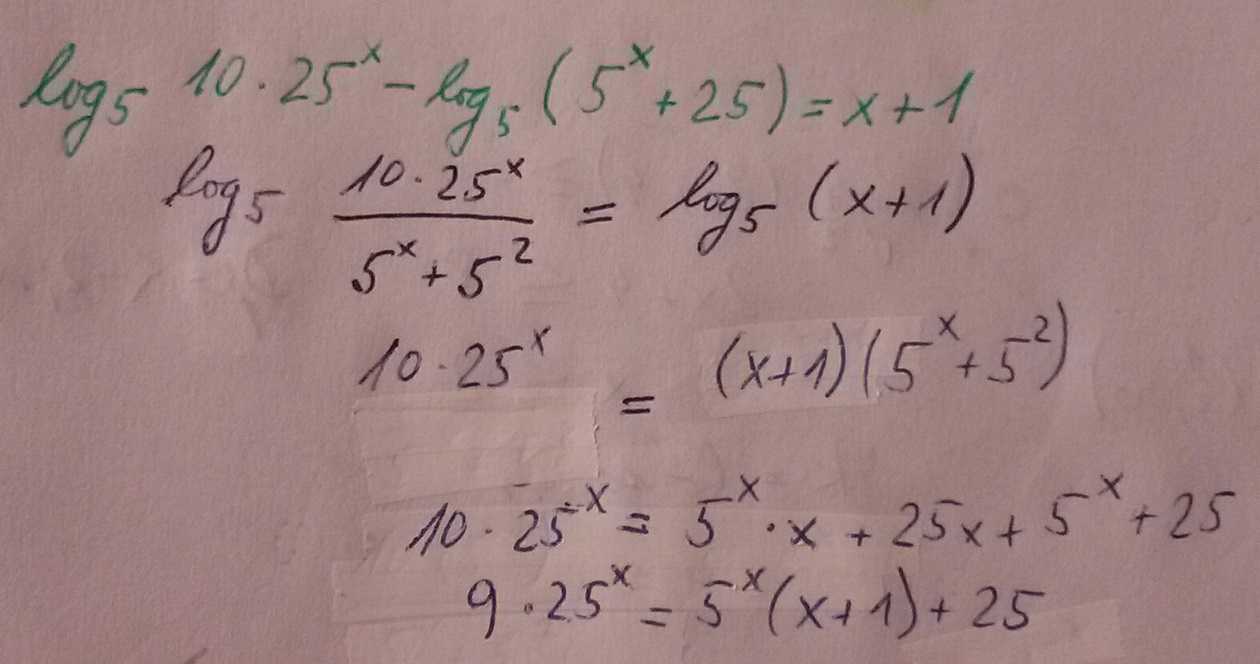 log₅ 10 · 25ˣ − log₅ (5ˣ + 25) = x + 1
log₅ (10 · 25ˣ)/(5ˣ + 5²) = log₅ (x + 1)
10 · 25ˣ = (x + 1)(5ˣ + 5²)
10 · 25ˣ = 5ˣ · x + 25x + 5ˣ + 25
9 · 25ˣ = 5ˣ(x + 1) + 25